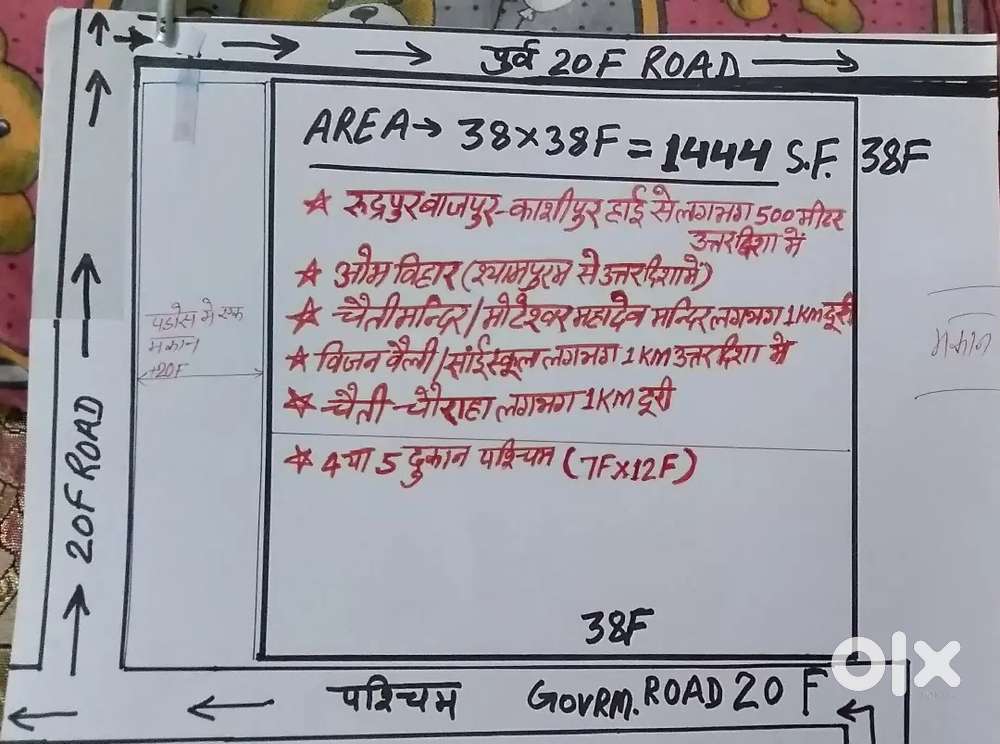 पुर्व 20F ROAD
AREA→ 38×38F = 1444 S.F.
38F
★ रुद्रपुर बाजपुर-काशीपुर हाई से लगभग 500 मीटर
उत्तर दिशा में
★ ओम विहार (श्यामपुरम से उत्तर दिशा में)
★ चैती मन्दिर/मोटेश्वर महादेव मन्दिर लगभग 1KM दूरी
★ विजन वैली/सांई स्कूल लगभग 1KM उत्तर दिशा में
★ चैती चौराहा लगभग 1KM दूरी
★ 4 या 5 दुकान पश्चिम (7F×12F)
पडोस मे एक
मकान
+20F
मकान
20F ROAD
38F
पश्चिम GOVRM. ROAD 20 F
olx